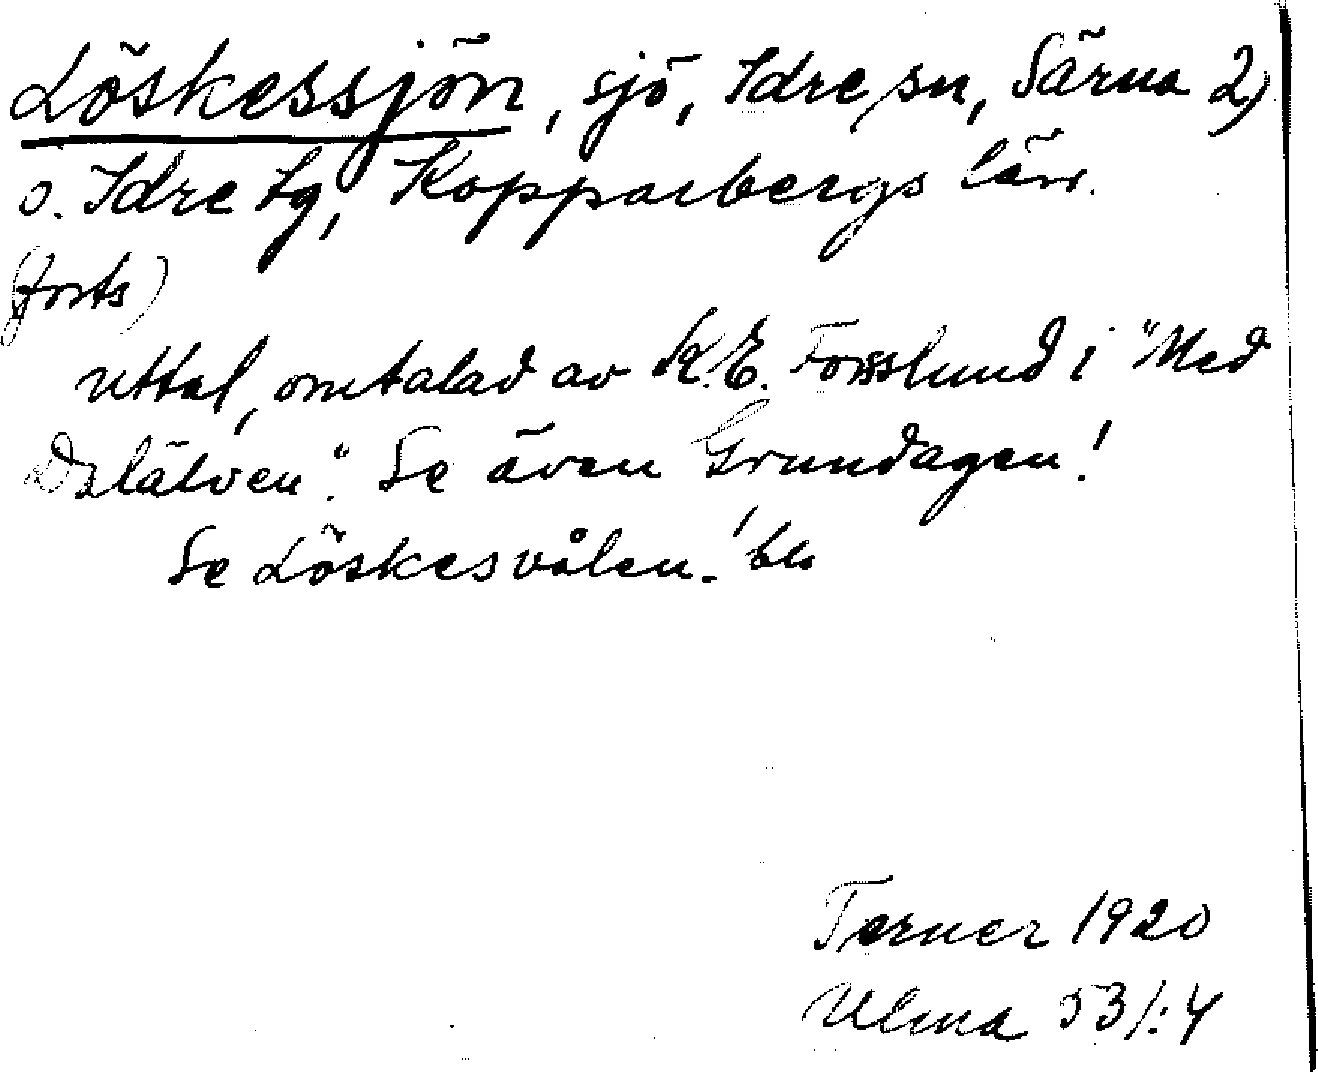 Löskessjön, sjö, Idre sn, Särna 2)
o. Idre tg, Kopparbergs län.
(forts)
uttal, omtalad av K.E. Forsslund i "Med
Dalälven". Se även Grundagen!
Se Löskesvålen!
Terner 1920
Ulma 53/:4